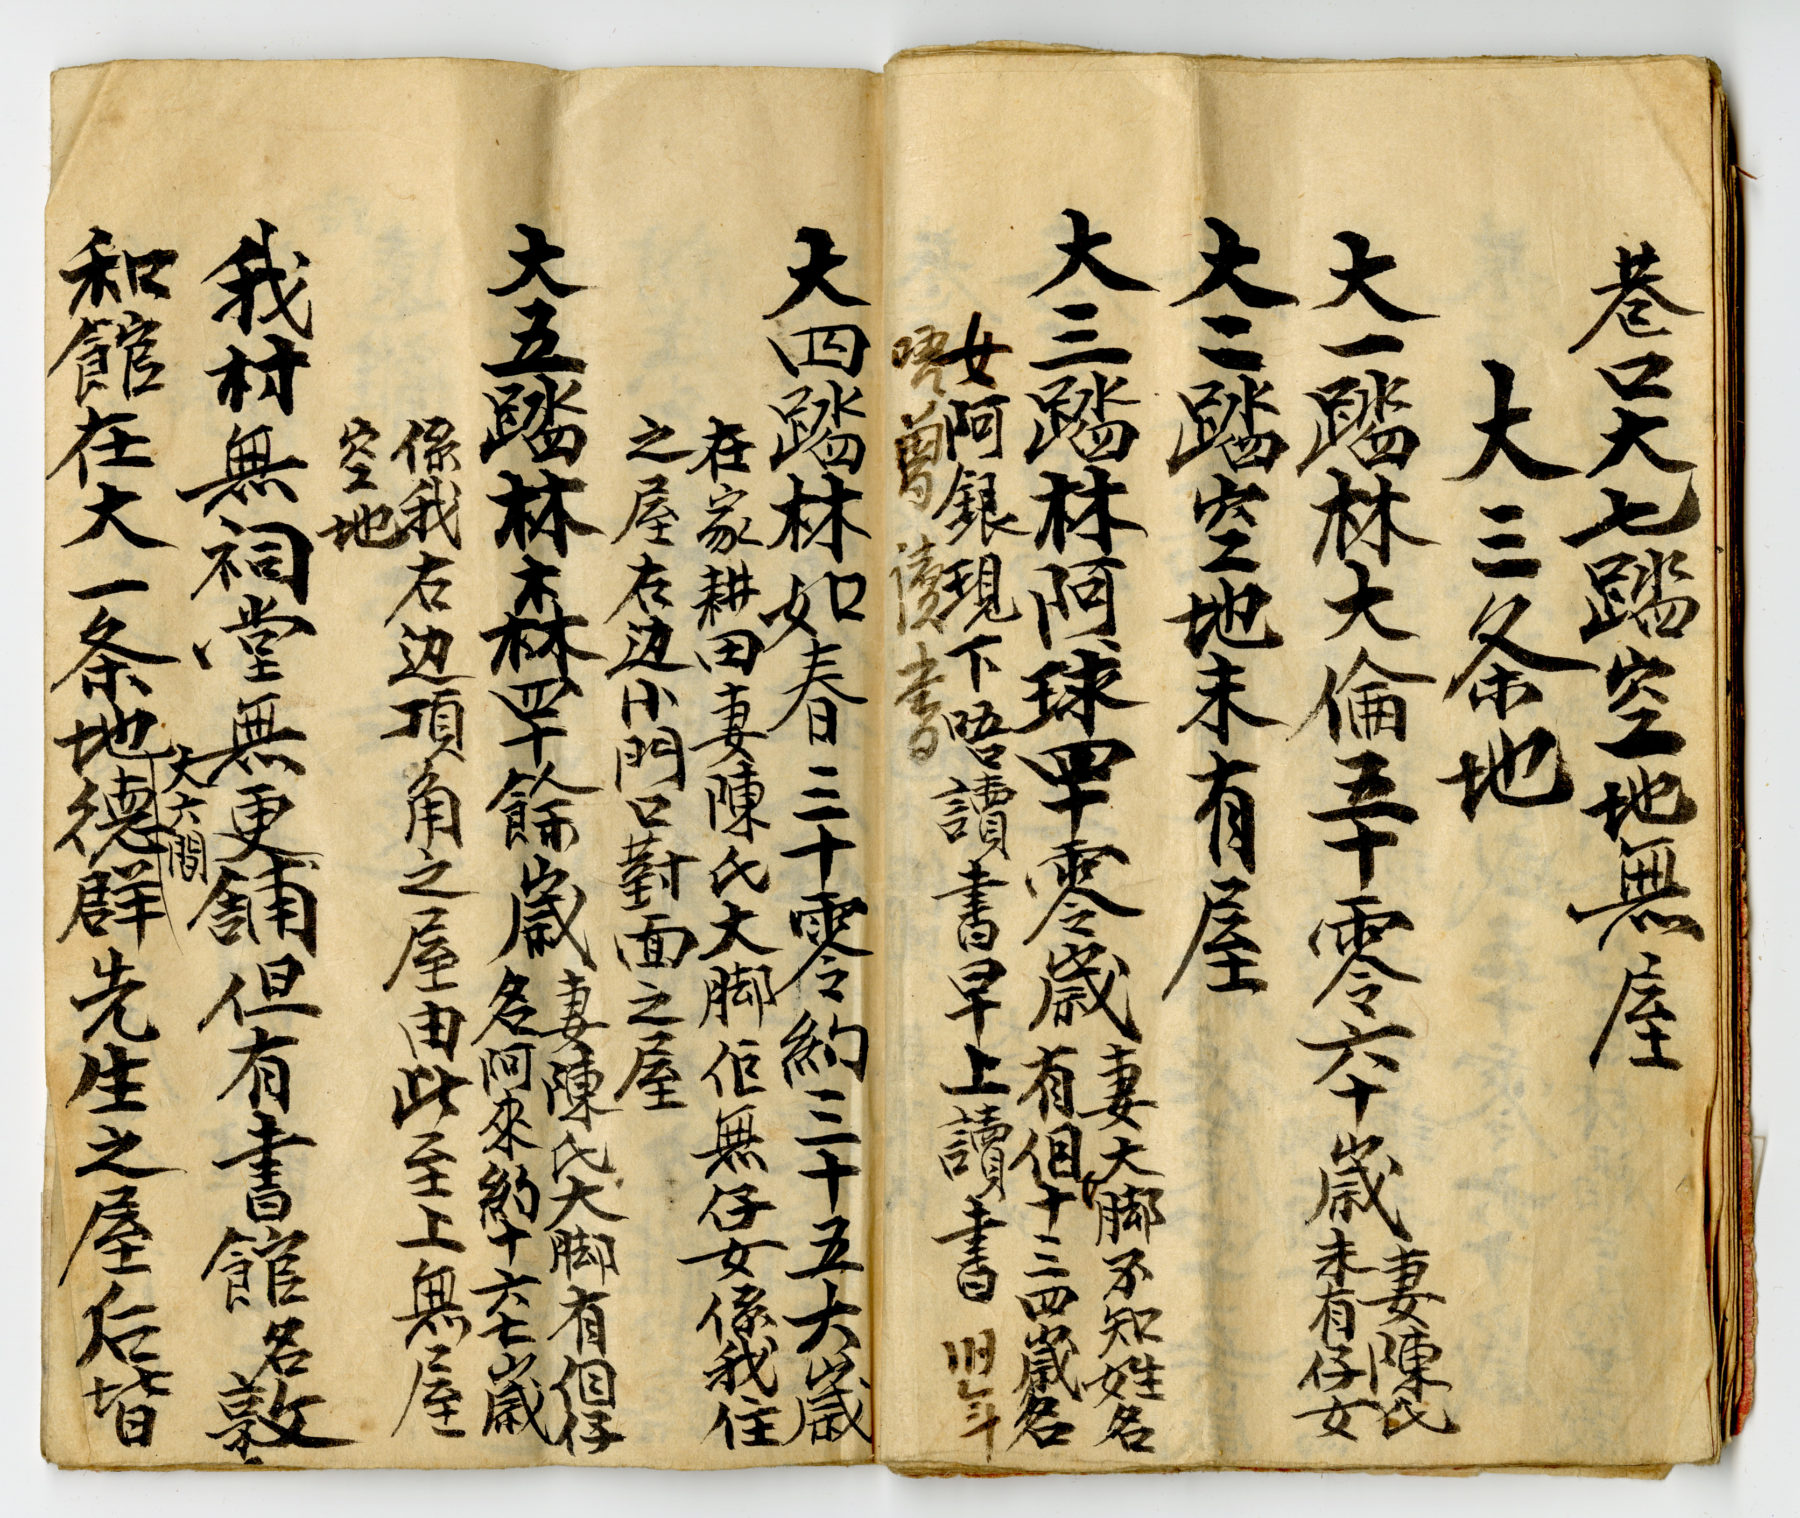 巷口大七踏空地無屋
大三条地
大一踏林大倫五十零六十歲妻陳氏
未有仔女
大二踏空地未有屋
大三踏林阿球四十零歲妻大脚不知姓名
有個十三四歲名
女阿銀現下唔讀書早上讀書旧年
唔曾讀書
大四踏林如春三十零約三十五大歲
在家耕田妻陳氏大脚佢無仔女係我住
之屋右边小門口對面之屋
大五踏林木森四十餘歲妻陳氏大脚有個仔
名阿來約十六七歲
係我右边頂角之屋由此至上無屋
空地
我村無祠堂無更舖但有書館名敦
大六間
和館在大一条地德群先生之屋后皆